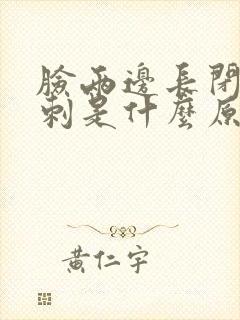 臉兩邊長閉
刺是什麼原
黃仁宇